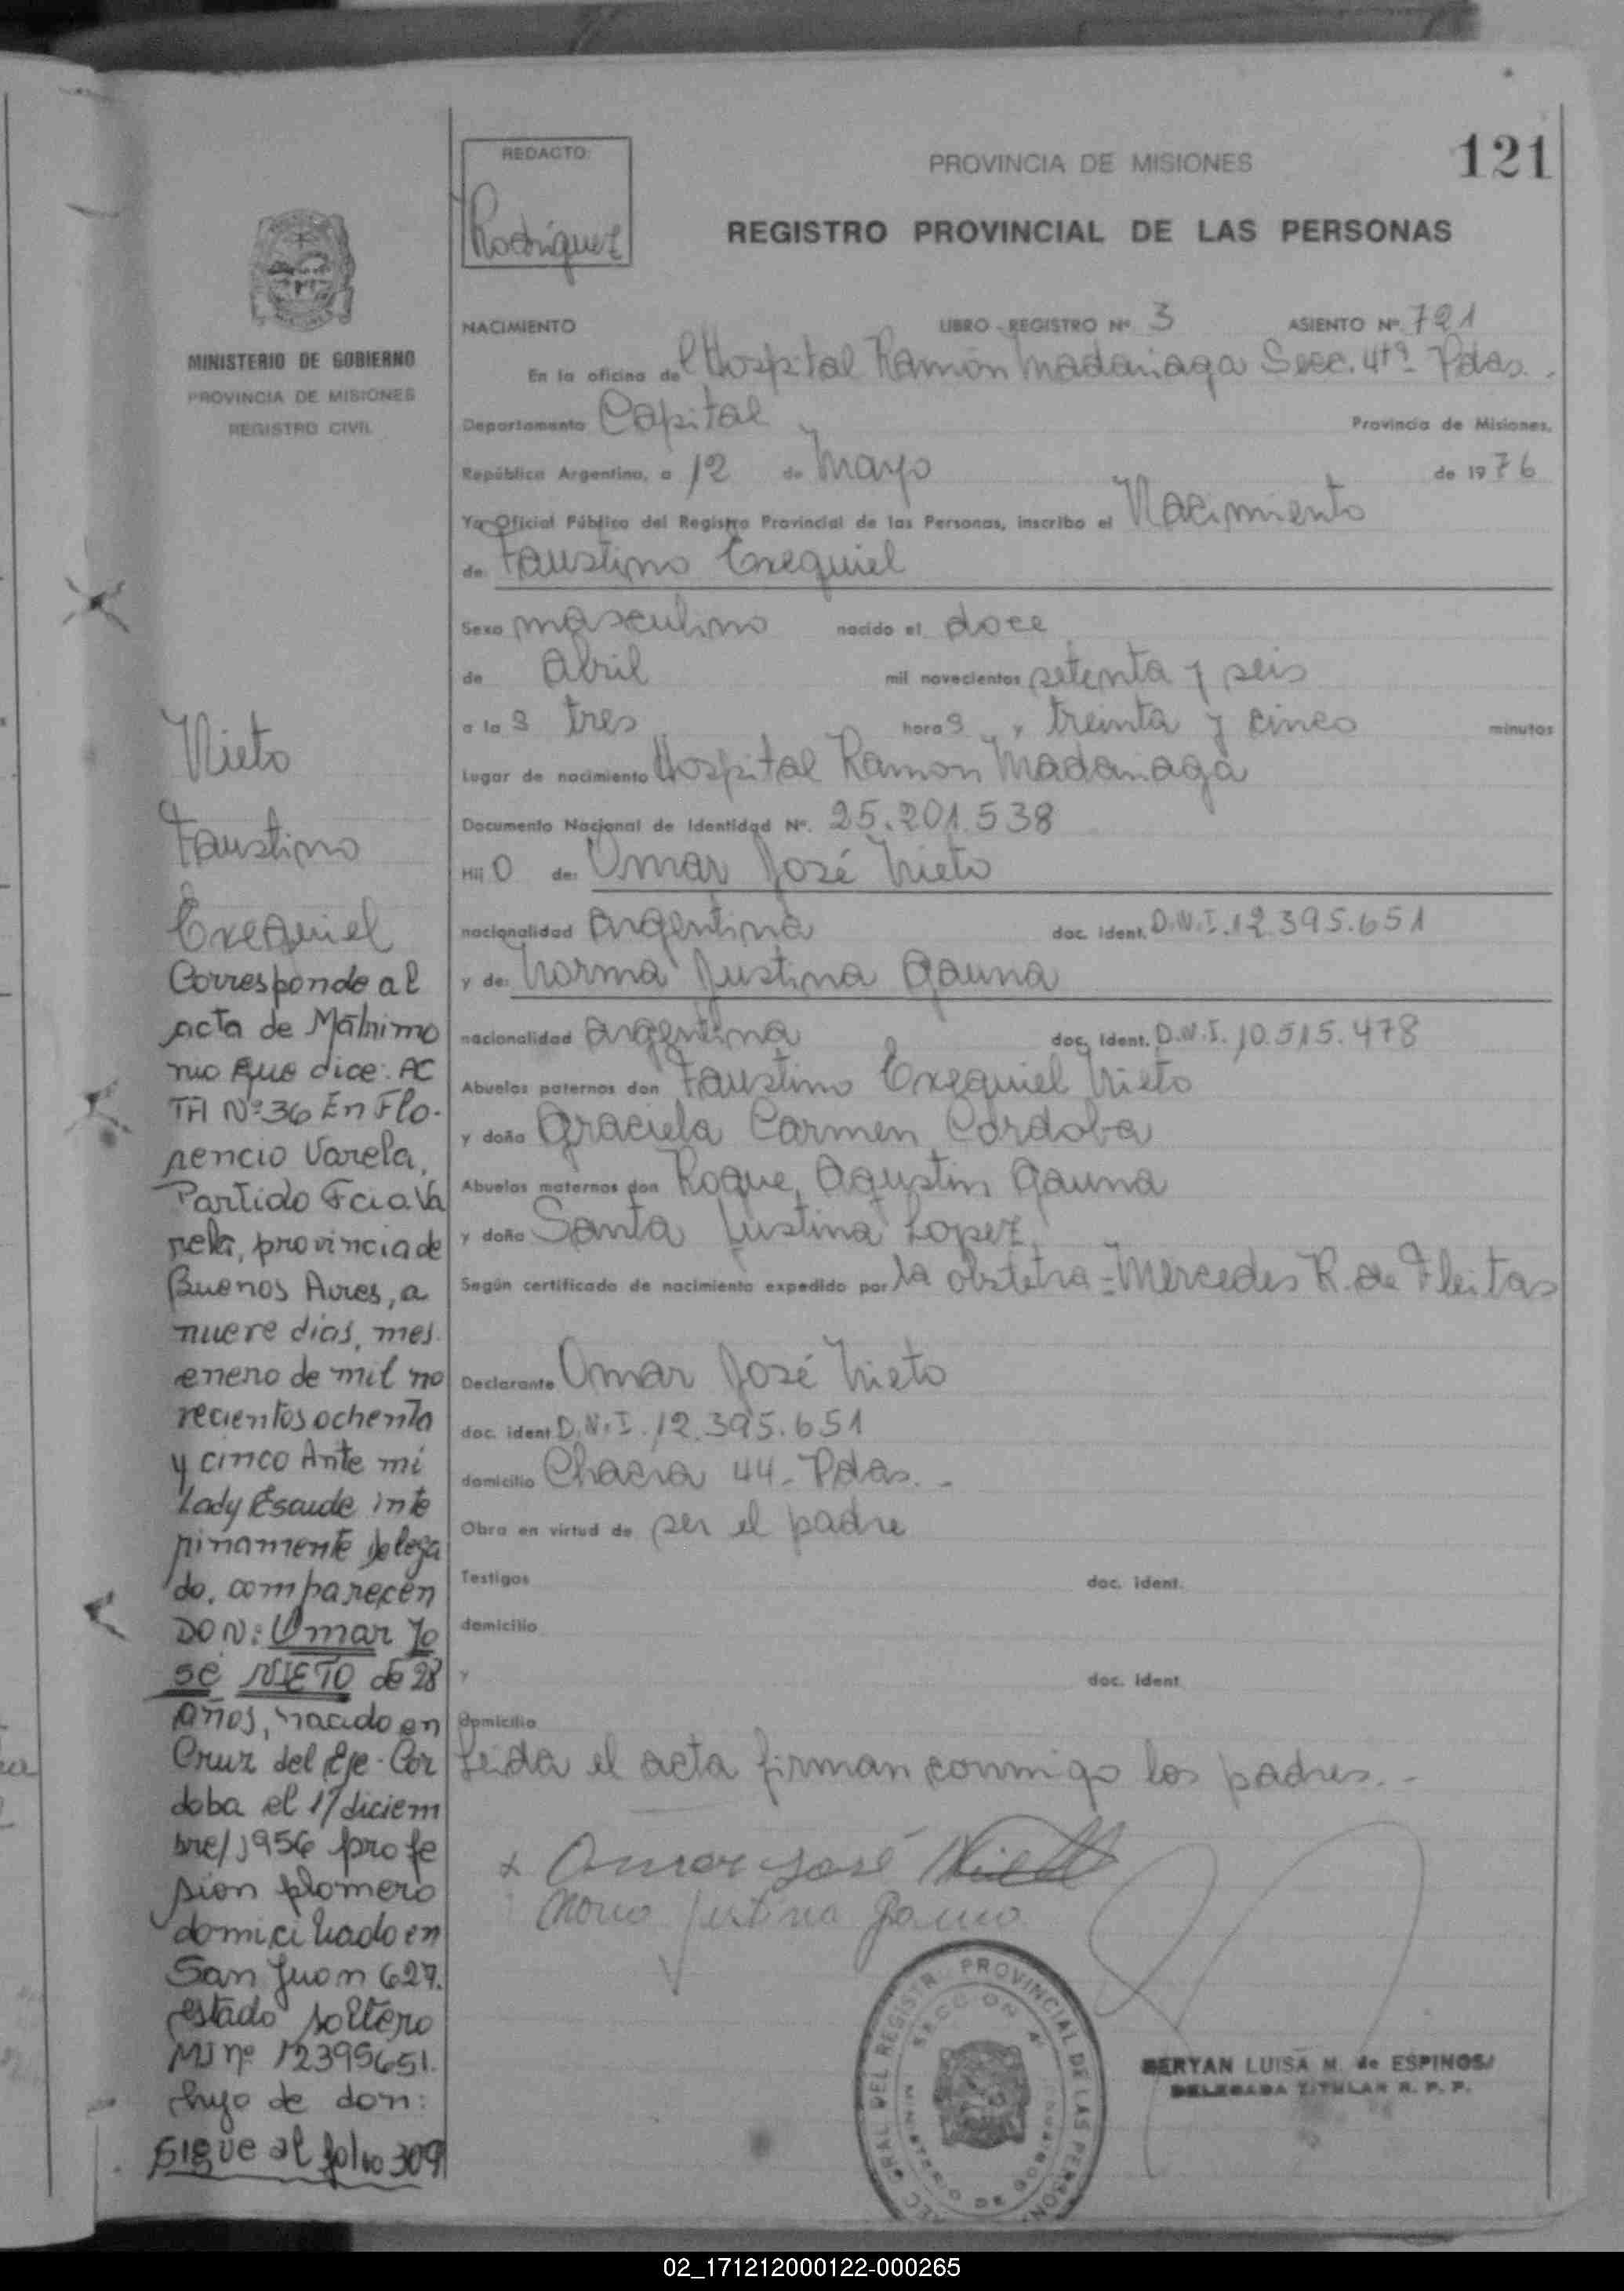 121
REDACTO:
Rodriguez
PROVINCIA DE MISIONES
REGISTRO PROVINCIAL DE LAS PERSONAS
MINISTERIO DE GOBIERNO
PROVINCIA DE MISIONES
REGISTRO CIVIL
NACIMIENTO LIBRO - REGISTRO Nº 3 ASIENTO Nº 721
En la oficina del Hospital Ramón Madariaga Secc. 4tª Pdas.
Departamento Capital Provincia de Misiones,
República Argentina, a 12 de Mayo de 1976
Yo Oficial Público del Registro Provincial de las Personas, inscribo el Nacimiento
de: Faustino Exequiel
Sexo masculino nacido el doce
de Abril mil novecientos setenta y seis
a las tres horas y treinta y cinco minutos
Lugar de nacimiento Hospital Ramon Madariaga
Documento Nacional de Identidad Nº. 25.201.538
Hijo de: Omar José Nieto
nacionalidad argentina doc. ident. D.N.I. 12.395.651
y de: Norma Justina Gauna
nacionalidad argentina doc. ident. D.N.I. 10.515.478
Abuelos paternos don Faustino Exequiel Nieto
y doña Graciela Carmen Cordoba
Abuelos maternos don Roque Agustin Gauna
y doña Santa Justina Lopez
Según certificado de nacimiento expedido por la obstetra - Mercedes R. de Fleitas
Declarante Omar José Nieto
doc. ident D.N.I. 12.395.651
domicilio Chacra 44 - Pdas. -
Obra en virtud de ser el padre
Testigos doc. ident.
domicilio
y doc. ident
domicilio
Leida el acta firman conmigo los padres. -
x Omar José Nieto
Norma Justina Gauna
REGISTR. PROVINCIAL DE LAS PERSON.
SECCION 4ª
BERYAN LUISA M. de ESPINOSA
DELEGADA TITULAR R. P. P.
Nieto
Faustino
Exequiel
Corresponde al
acta de Matrimo
nio que dice: AC
TA Nº 36 En Flo-
rencio Varela,
Partido Fcio. Va
rela, provincia de
Buenos Aires, a
nueve dias, mes
enero de mil no
vecientos ochenta
y cinco Ante mi
Lady Escude inte
rinamente Delega
do, comparecen
DON: Omar Jo
sé NIETO de 28
años, nacido en
Cruz del Eje - Cor
doba el 17 diciem
bre/1956 profe
sion plomero
domiciliado en
San Juan 627.
estado soltero
MI nº 12395651.
hijo de don:
Sigue al folio 309
02_171212000122-000265